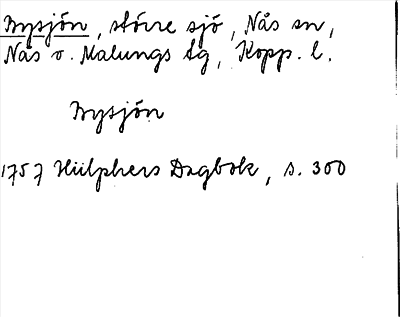 Bysjön, större sjö, Nås sn,
Nås o. Malungs tg, Kopp. l.
Bysjön
1757 Hülphers Dagbok, s. 300